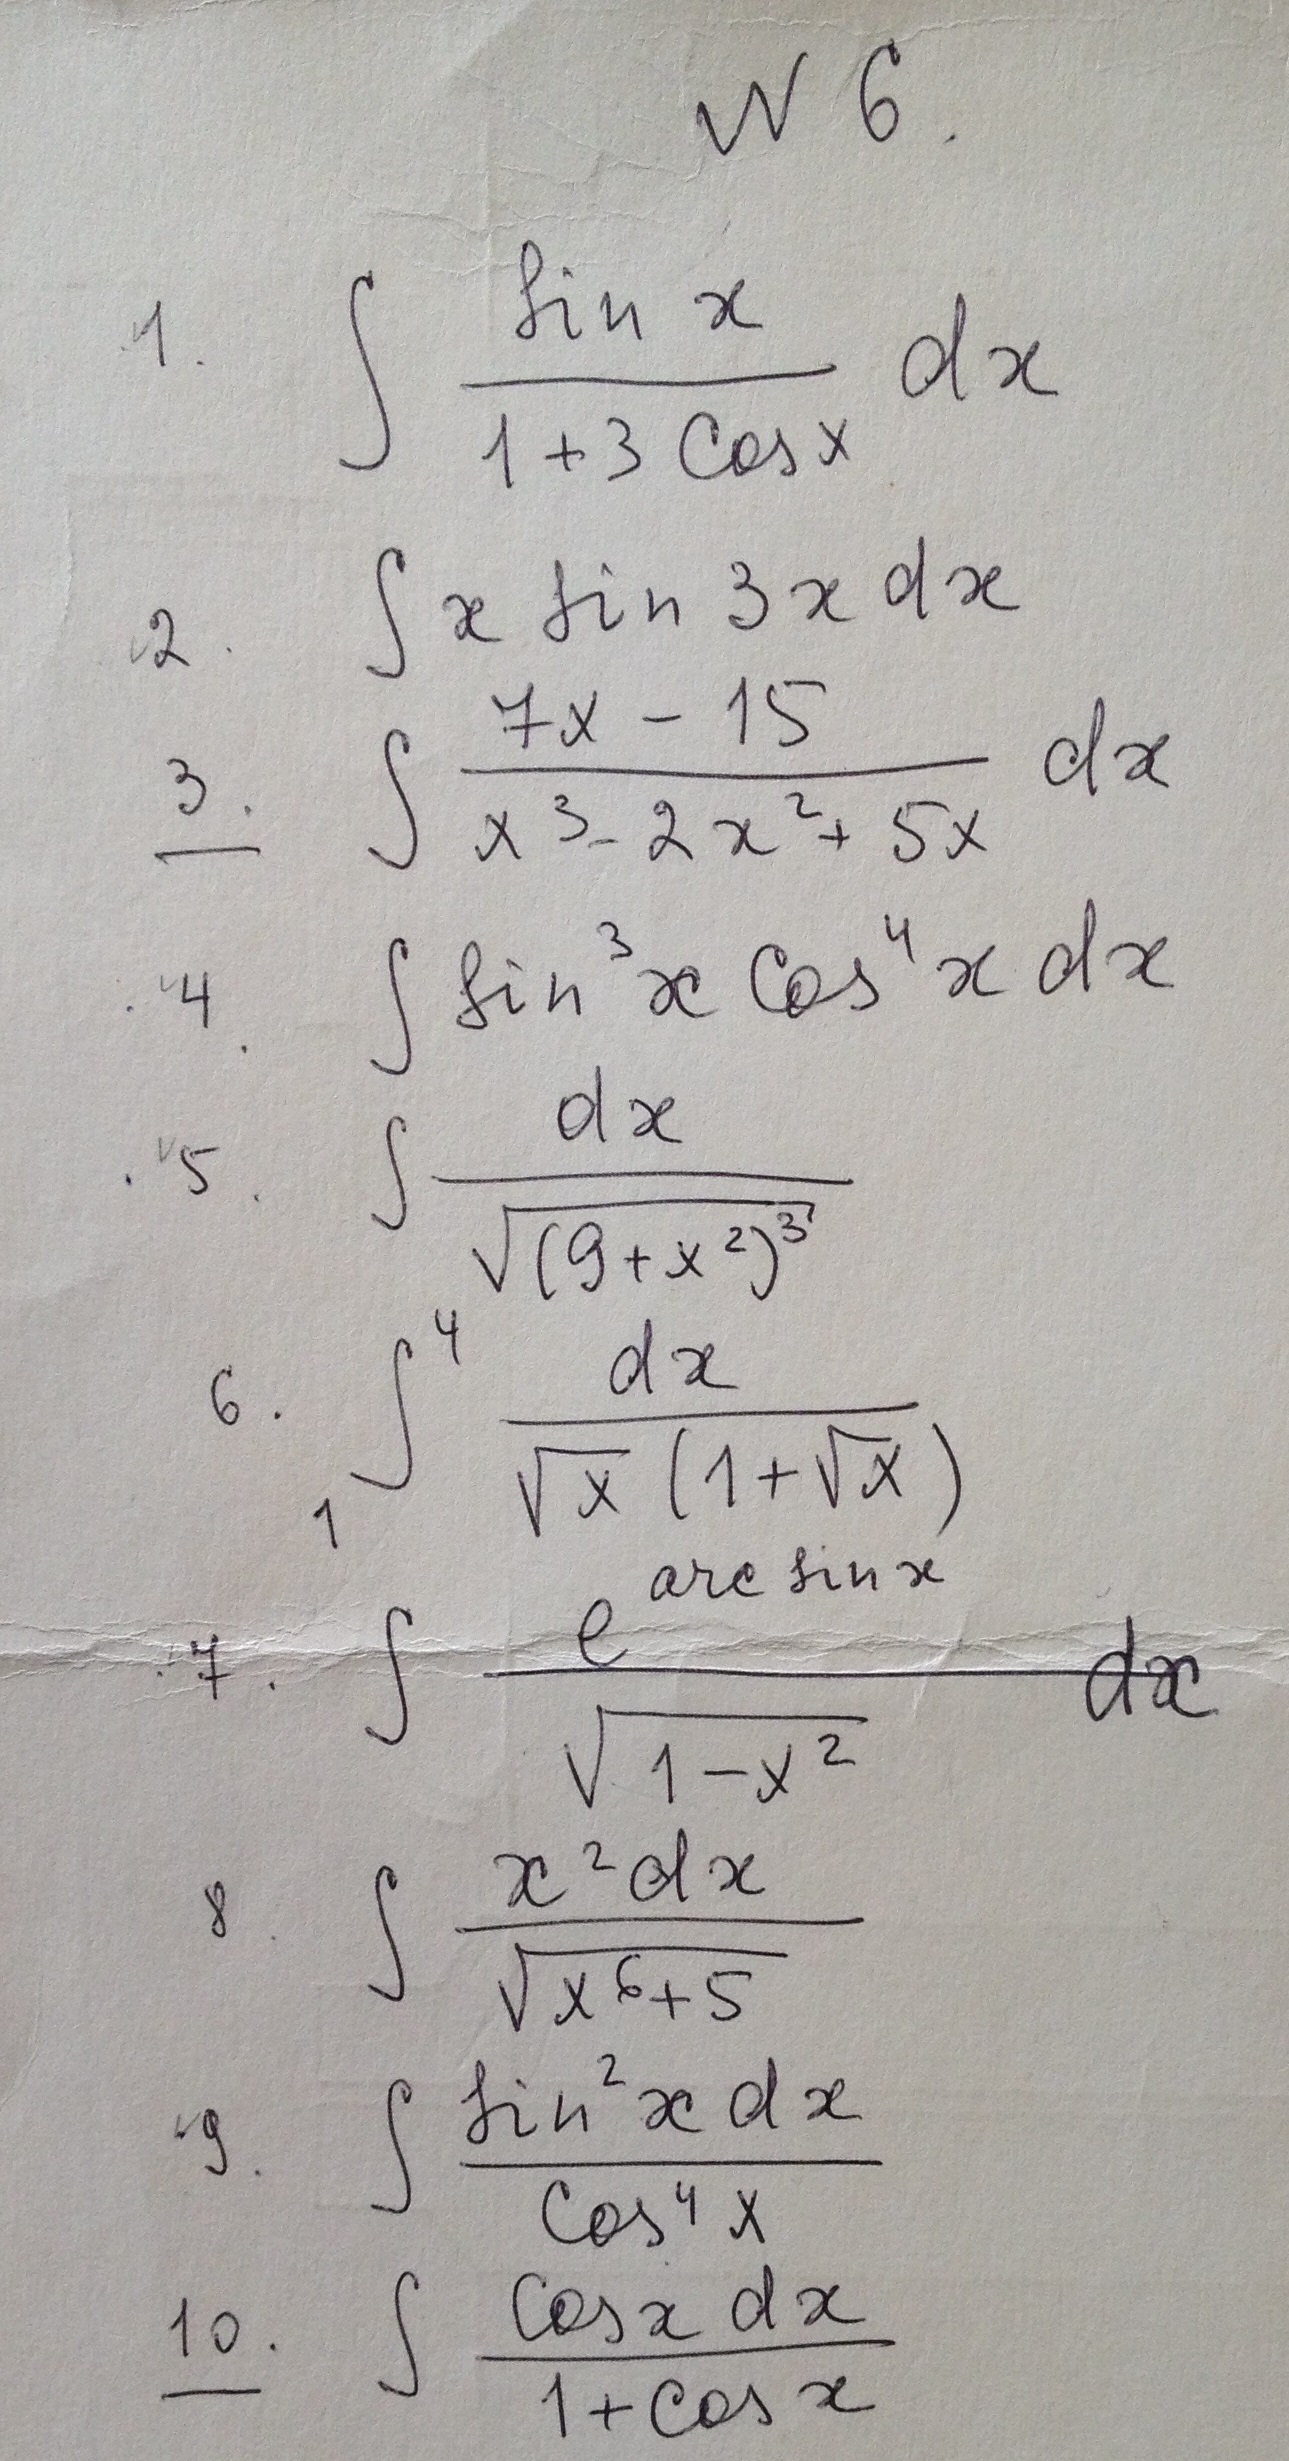 N 6.
1. ∫ sin x / (1 + 3 cos x) dx
2. ∫ x sin 3x dx
3. ∫ (7x - 15) / (x³ - 2x² + 5x) dx
4. ∫ sin³x cos⁴x dx
5. ∫ dx / √((9 + x²)³)
6. ∫₁⁴ dx / (√x (1 + √x))
7. ∫ e^(arcsin x) / √(1 - x²) dx
8. ∫ x² dx / √(x⁶ + 5)
9. ∫ sin²x dx / cos⁴x
10. ∫ cos x dx / (1 + cos x)